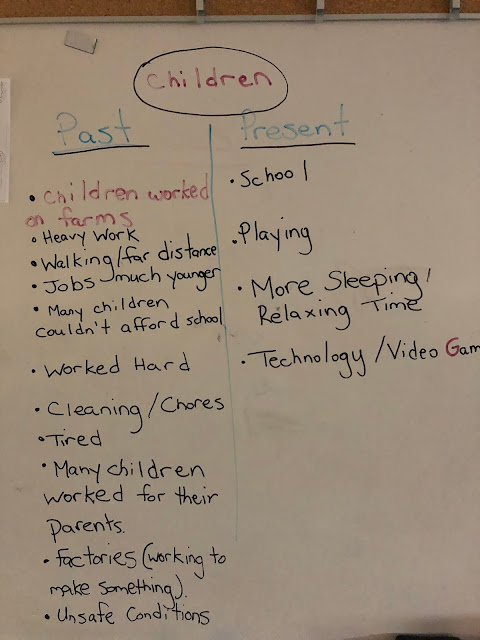 Children
Past
• Children worked
on farms
• Heavy Work
• Walking/far distance
• Jobs much younger
• Many children
couldn't afford school
• Worked Hard
• Cleaning/Chores
• Tired
• Many children
worked for their
Parents.
• Factories (working to
make something).
• Unsafe Conditions
Present
• School
• Playing
• More Sleeping/
Relaxing Time
• Technology/Video Gam